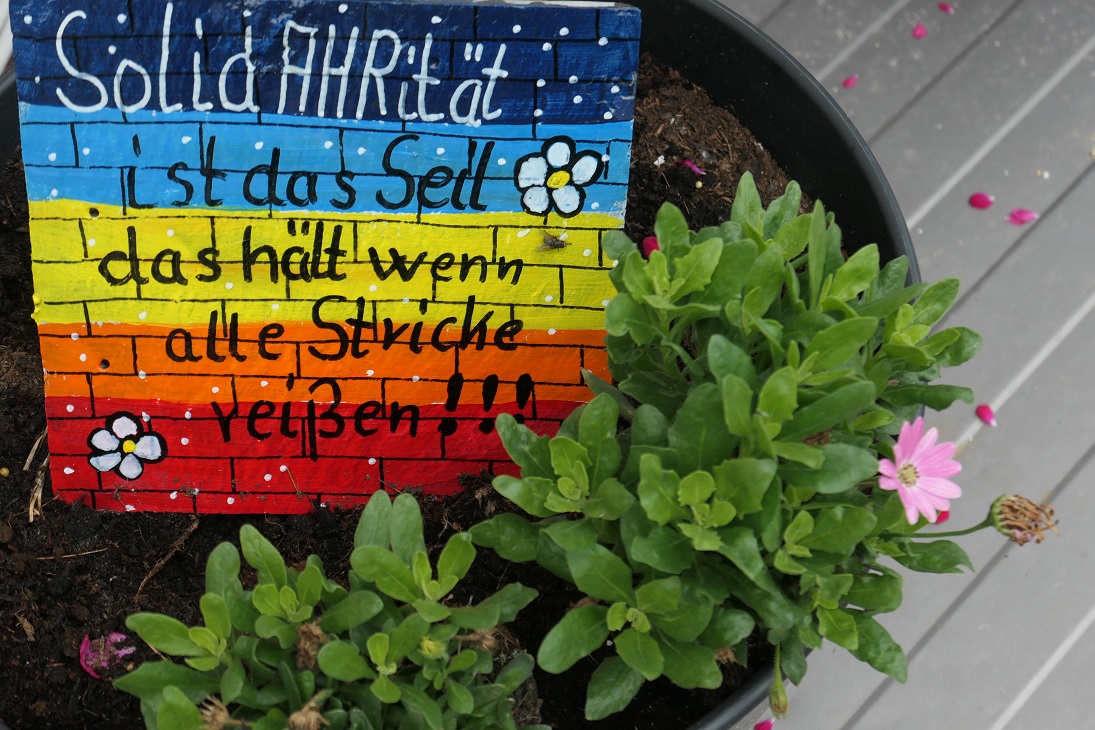 SolidAHRität
ist das Seil
das hält wenn
alle Stricke
reißen!!!